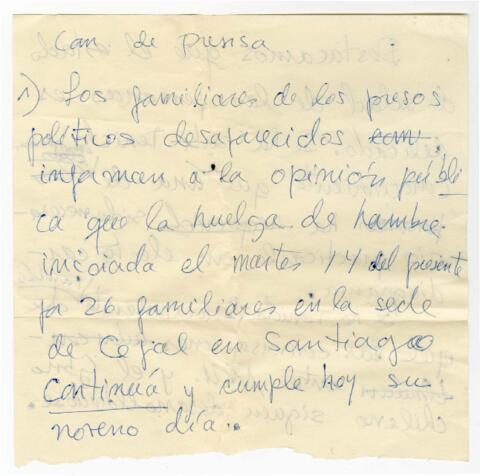 Con de prensa
1) Los familiares de los presos
políticos desaparecidos com
informan a la opinión públi
ca que la huelga de hambre
iniciada el martes 14 del presente
26 familiares en la sede
de Cepal en Santiago
continuá y cumple hoy su
noveno día..